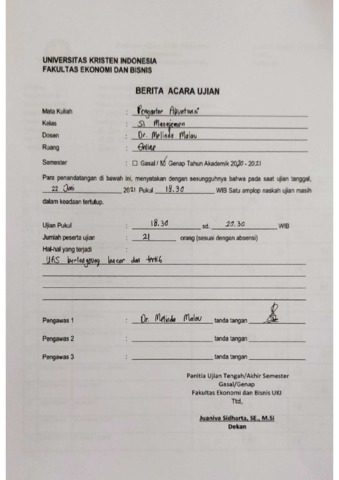 UNIVERSITAS KRISTEN INDONESIA
FAKULTAS EKONOMI DAN BISNIS
BERITA ACARA UJIAN
Mata Kuliah : Pengantar Akuntansi
Kelas : S1 Manajemen
Dosen : Dr. Melinda Malau
Ruang : Online
Semester : Gasal / Genap Tahun Akademik 2020 - 2021
Para penandatangan di bawah ini, menyatakan dengan sesungguhnya bahwa pada saat ujian tanggal,
22 Juni 2021 Pukul 18.30 WIB Satu amplop naskah ujian masih
dalam keadaan tertutup.
Ujian Pukul : 18.30 sd. 20.30 WIB
Jumlah peserta ujian : 21 orang (sesuai dengan absensi)
Hal-hal yang terjadi :
UAS berlangsung lancar dan tertib
Pengawas 1 : Dr. Melinda Malau tanda tangan
Pengawas 2 : tanda tangan
Pengawas 3 : tanda tangan
Panitia Ujian Tengah/Akhir Semester
Gasal/Genap
Fakultas Ekonomi dan Bisnis UKI
Ttd,
Juaniva Sidharta, SE., M.Si
Dekan